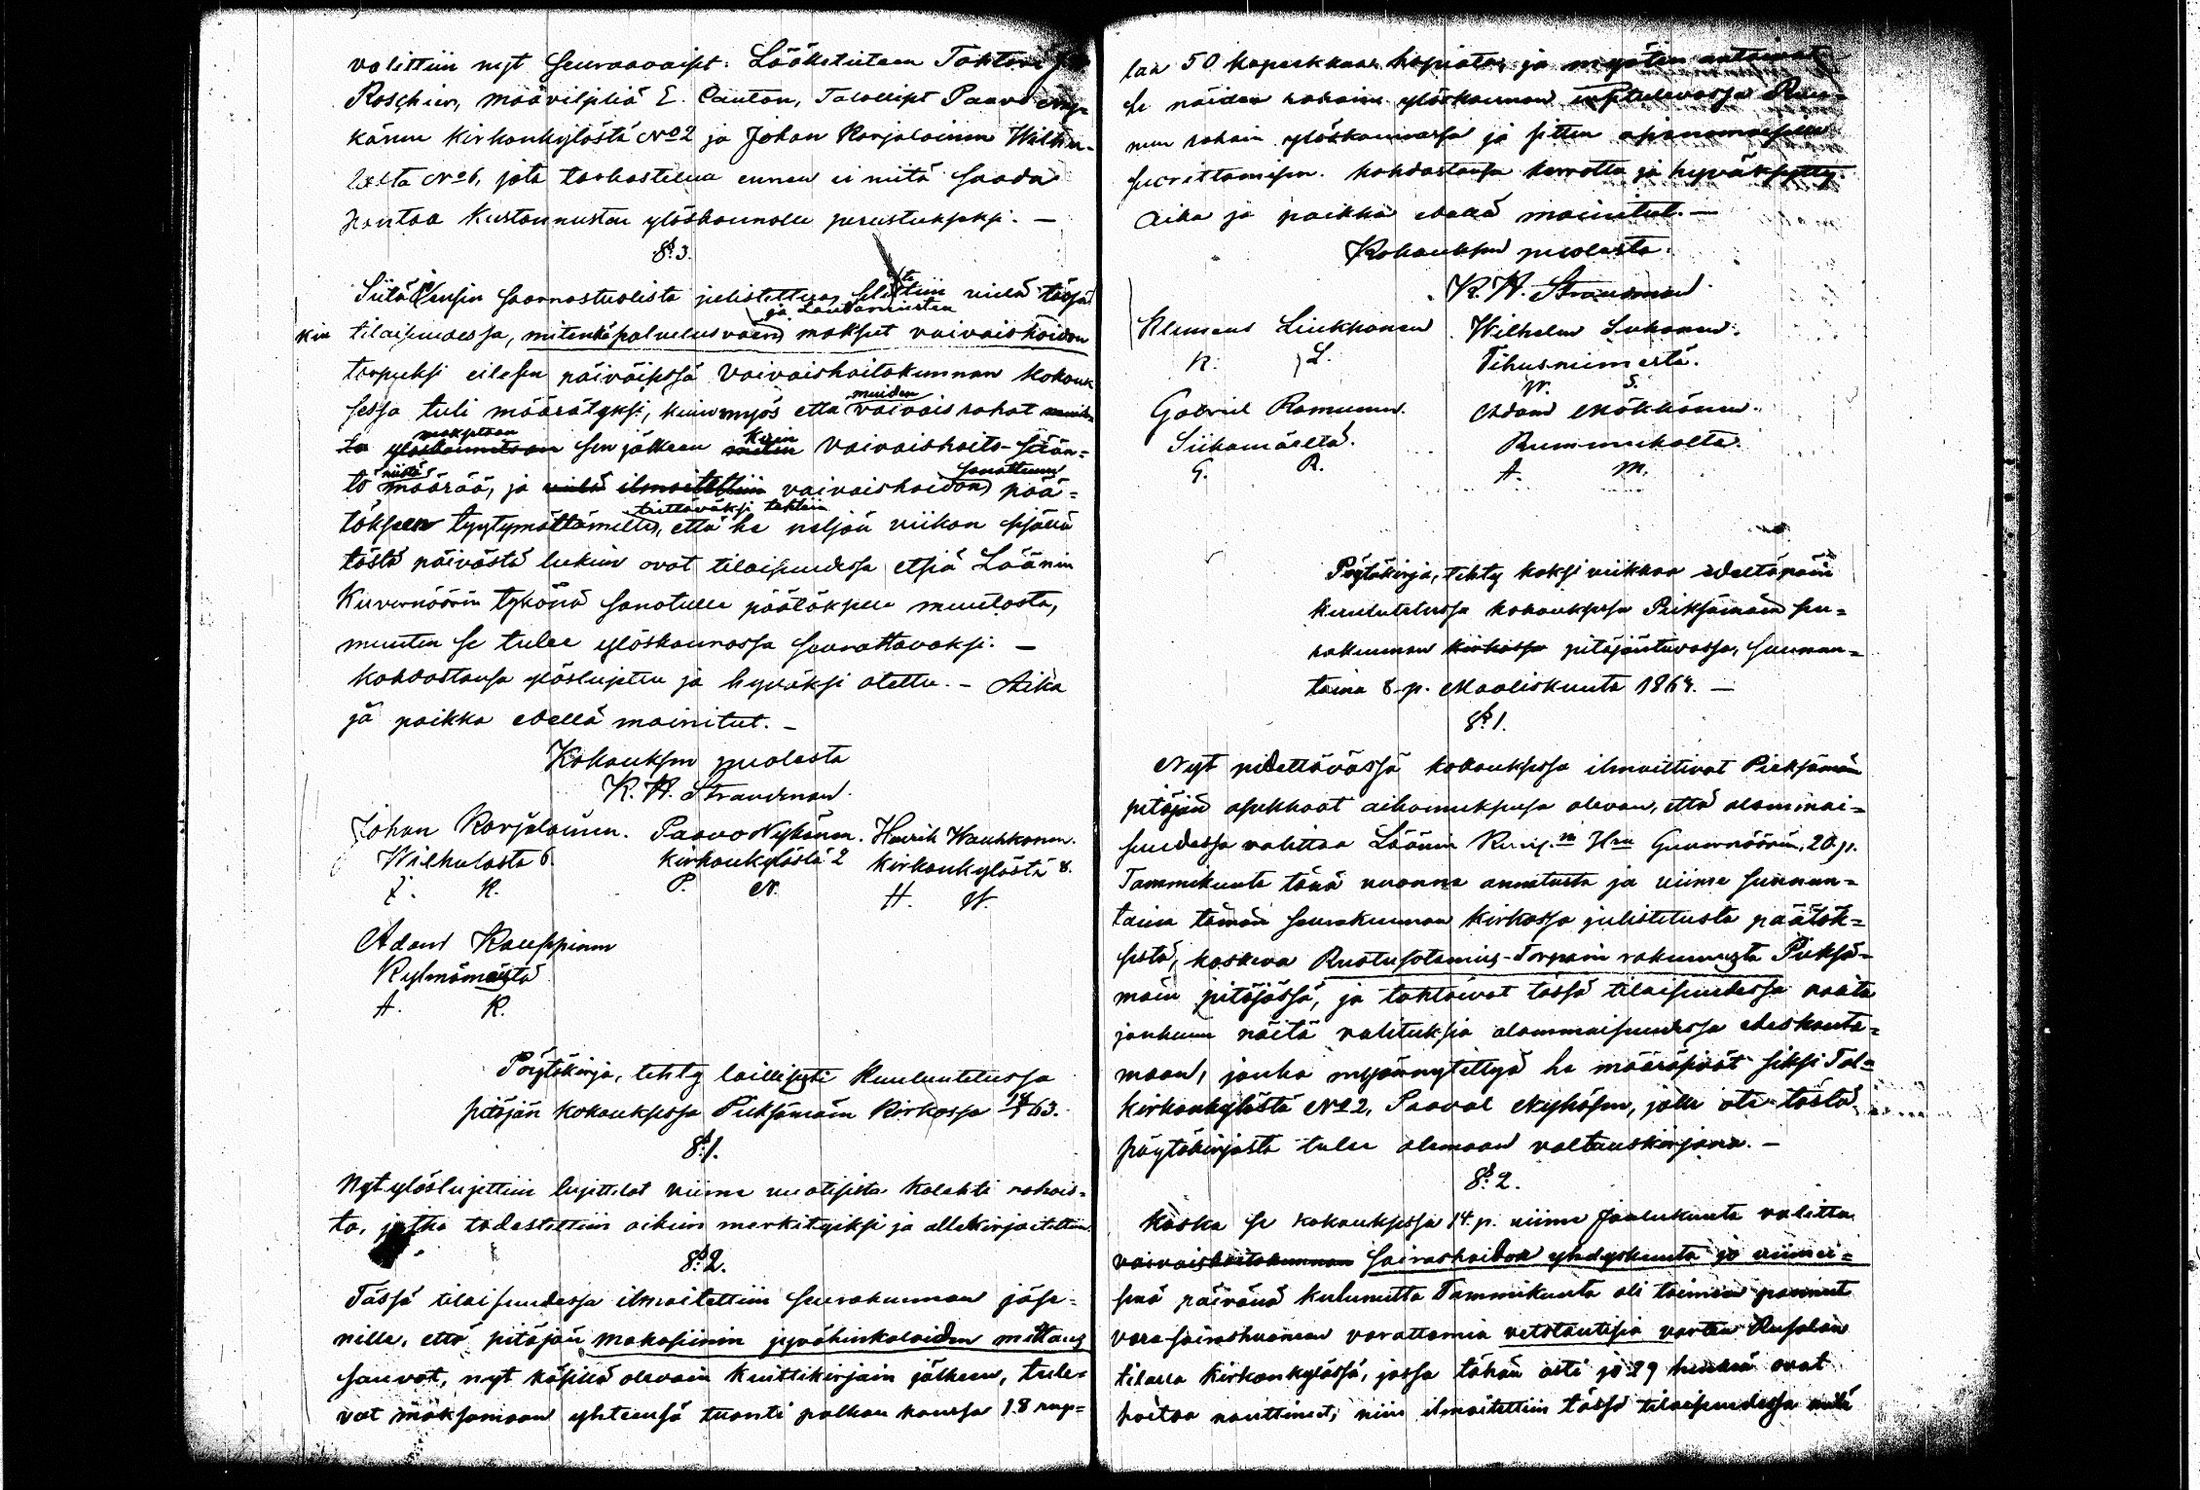 valittiin nyt seuraavaiset. Lääketieteen Tohtori
Roschier, määviljeliä E. Cantón, Talolliset Paavo Ny-
känen Kirkonkylästä No 2 ja Johan Karjalainen Wilhu-
lasta No 6, jota tarkastelua ennen ei niitä saada
pantaa kustannusten ylöskannolle perustukseksi. —
§ 3.
Siitä saarnastuolista julistettua, vielä tässä
ja Lautamiesten
kin tilaisuudessa, mitenkä palvelusväen maksut vaivaishoidon
tarpeeksi eilisen päiväisessä Vaivaishoitokunnan kokouk-
muiden
sessa tuli määrätyksi, kuin myös että vaivaisrahat
maksetaan kuin
ta ylöskannetaan sen jälkeen vaivaishoito-sään-
niistä sanottuun
tö määrää, ja vielä ilmoitettiin vaivaishoidon pää-
tiettäväksi tehtiin
tökseen tyytymättömille, että he neljän viikon sisällä
tästä päivästä lukein ovat tilaisuudessa etsiä Läänin
Kuvernöörin tykönä sanotulle päätökselle muutosta,
muuten se tulee ylöskannossa seurattavaksi. —
Kohdastansa ylösluettu ja hyväksi otettu. — Aika
ja paikka edellä mainitut. —
Kokouksen puolesta
K. H. Strandman.
Johan Karjalainen. Paavo Nykänen. Henrik Wauhkonen.
Wilhulasta 6. Kirkonkylästä 2 Kirkonkylästä 8.
J. K. P. N. H. W.
Adam Kauppinen
Kylmämäeltä
A. K.
Pöytäkirja, tehty laillisesti kuulutetussa
pitäjän kokouksessa Pieksämäen Kirkossa 63.
§ 1.
Nyt ylösluettiin luettelot viime vuotisista kolehti rahois-
ta, jotka todistettiin oikein merkityiksi ja allekirjoitettiin.
§ 2.
Tässä tilaisuudessa ilmoitettiin seurakunnan jäse-
nille, että pitäjän makasiinin jyvähinkaloiden mittaus
sauvat, nyt käsillä olevain kuittikirjain jälkeen, tule-
vat maksamaan yhteensä tuonti palkan kanssa 18 rup-
laa 50 kopeekkaa hopiata, ja myötin antoivat
he näiden rahain ylöskannon
nun rahain ylöskannossa ja sitten asianomaisille
suorittamisen. Kohdastansa kerrottu ja hyväksytty.
Aika ja paikka edellä mainitut. —
Kokouksen puolesta.
K. H. Strandman.
Klemens Liukkonen Wilhelm Suhonen.
K. L. Tihusniemestä.
W. S.
Gabriel Ramunen. Adam Mökkönen.
Siikamäeltä. Rummukalta.
G. R. A. M.
Pöytäkirja, tehty kaksi viikkoa edeltäpäin
kuulutetussa kokouksessa Pieksämäen seu-
rakunnan kirkossa pitäjäntuvassa, sunnun-
taina 8 p. Maaliskuuta 1864. —
§ 1.
Nyt pidettävässä kokouksessa ilmoittivat Pieksämän
pitäjän asukkaat aikomuksensa olevan, että alammai-
suudessa valittaa Läänin Herra Guvernöörin, 20 p.
Tammikuuta tänä vuonna annetusta ja viime sunnun-
taina tämän seurakunnan kirkossa julistetusta päätök-
sestä, koskeva Ruotusotamies-Torpain rakennusta Pieksä-
mäen pitäjässä, ja tahtoivat tässä tilaisuudessa
jonkun näitä valituksia alammaisuudessa edeskanta-
maan, jonka myönnytettyä he määräsivät siksi Tal.
Kirkonkylästä No 2, Paaval Nykäsen, jolle ote tästä
pöytäkirjasta tulee olemaan valtauskirjana. —
§ 2.
Koska se kokouksessa 14. p. viime Joulukuuta valittu
vaivaishoitokunnan sairashoidon yhdyskunta jo viimei-
senä päivänä kulunutta Tammikuuta oli toimeen pannut
vara-sairashuoneen varattomia vetotautisia varten Rusolan
tilalla Kirkonkylässä, jossa tähän asti jo 29 henkeä ovat
hoitoa nauttineet, niin ilmoitettiin tässä tilaisuudessa